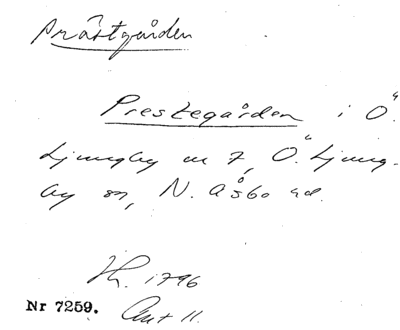 Prästgården
Prestegården i Ö.
Ljungby nr 7, Ö. Ljung-
by sn, N. Åsbo hd.
Hr. 1796
Nr 7259. Ant 11.